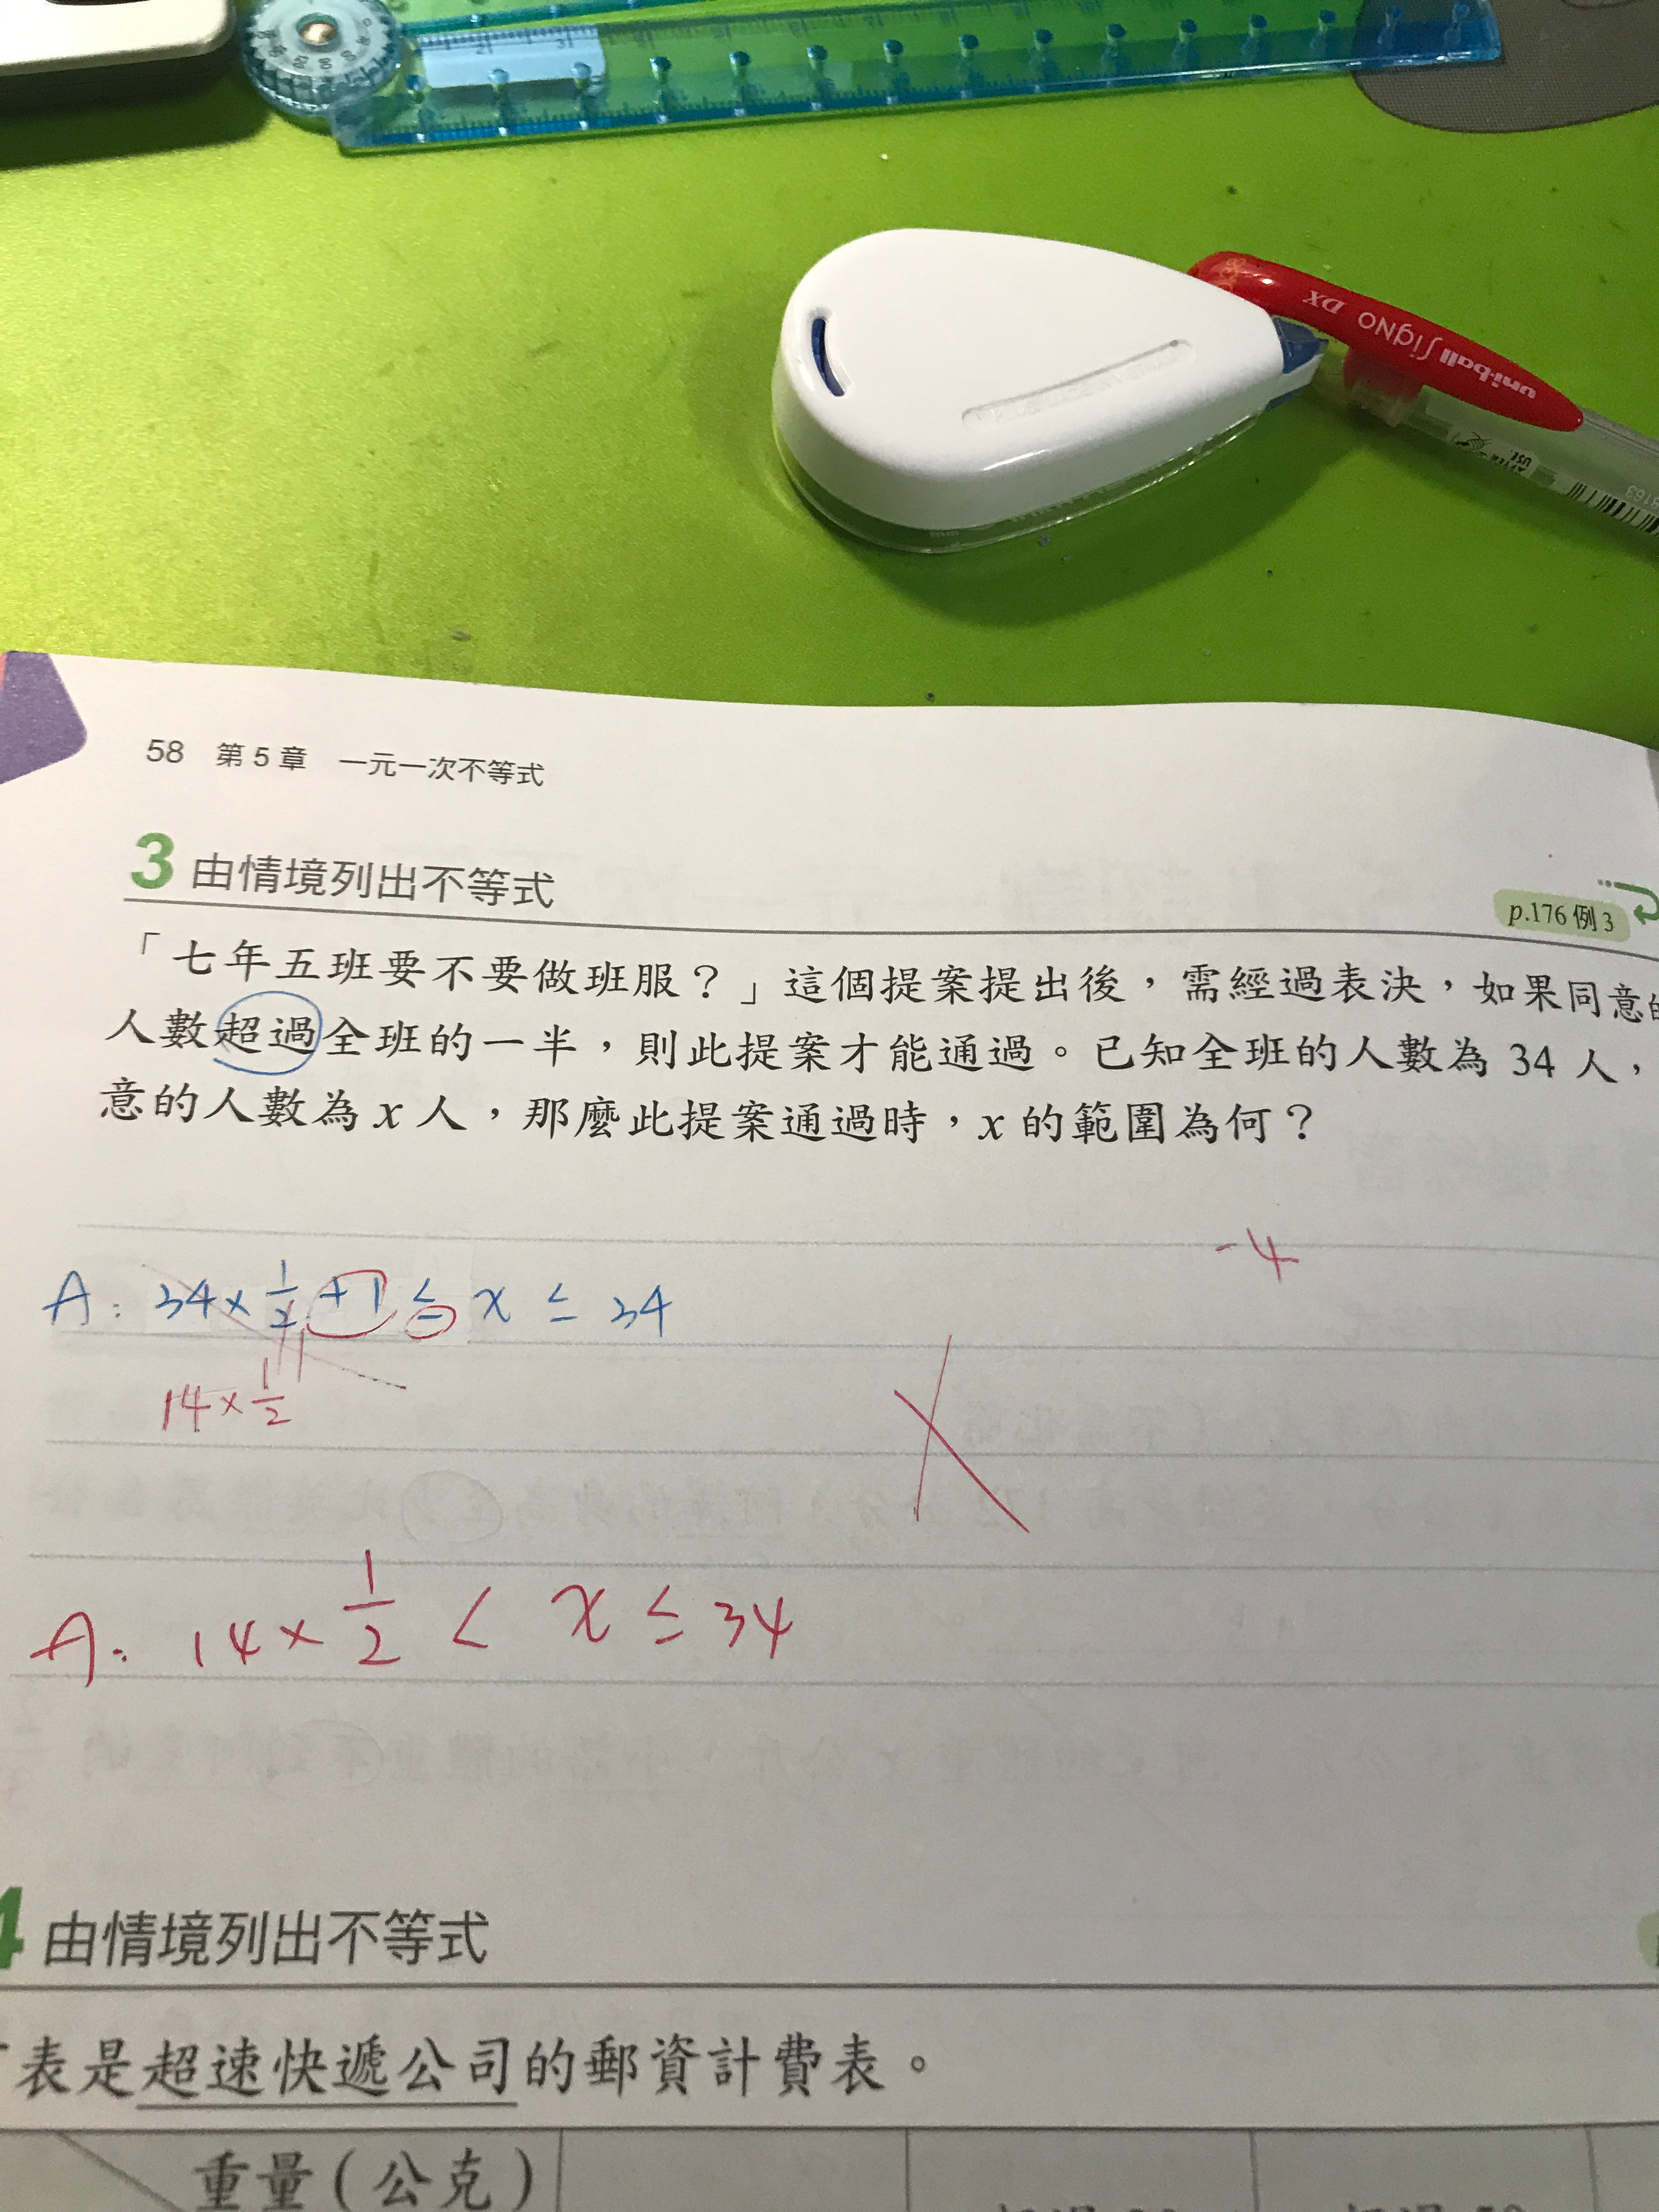 uni-ball SigNO DX
58 第 5 章 一元一次不等式
3 由情境列出不等式
p.176 例 3
「七年五班要不要做班服？」這個提案提出後，需經過表決，如果同意的
人數超過全班的一半，則此提案才能通過。已知全班的人數為 34 人，
意的人數為 x 人，那麼此提案通過時，x 的範圍為何？
-4
A: 34 × 1/2 +1 ≤ x ≤ 34
14 × 1/2
A: 14 × 1/2 < x ≤ 34
4 由情境列出不等式
表是超速快遞公司的郵資計費表。
重量(公克)